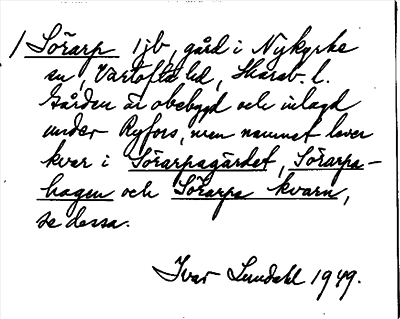 / Sörarp 1jb, gård i Nykyrke
sn, Vartofta hd, Skarab. l.
Gården är obebygd och inlagd
under Ryfors, men namnet lever
kvar i Sörarpagärdet, Sörarpa-
hagen och Sörarpa kvarn,
se dessa.
Ivar Lundahl 1949.